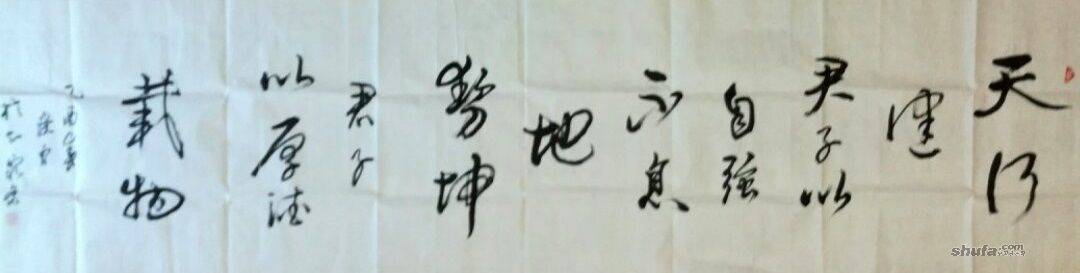 天行
健
君子以
自强
不息
地
势坤
君子
以厚德
载物
shufa.com